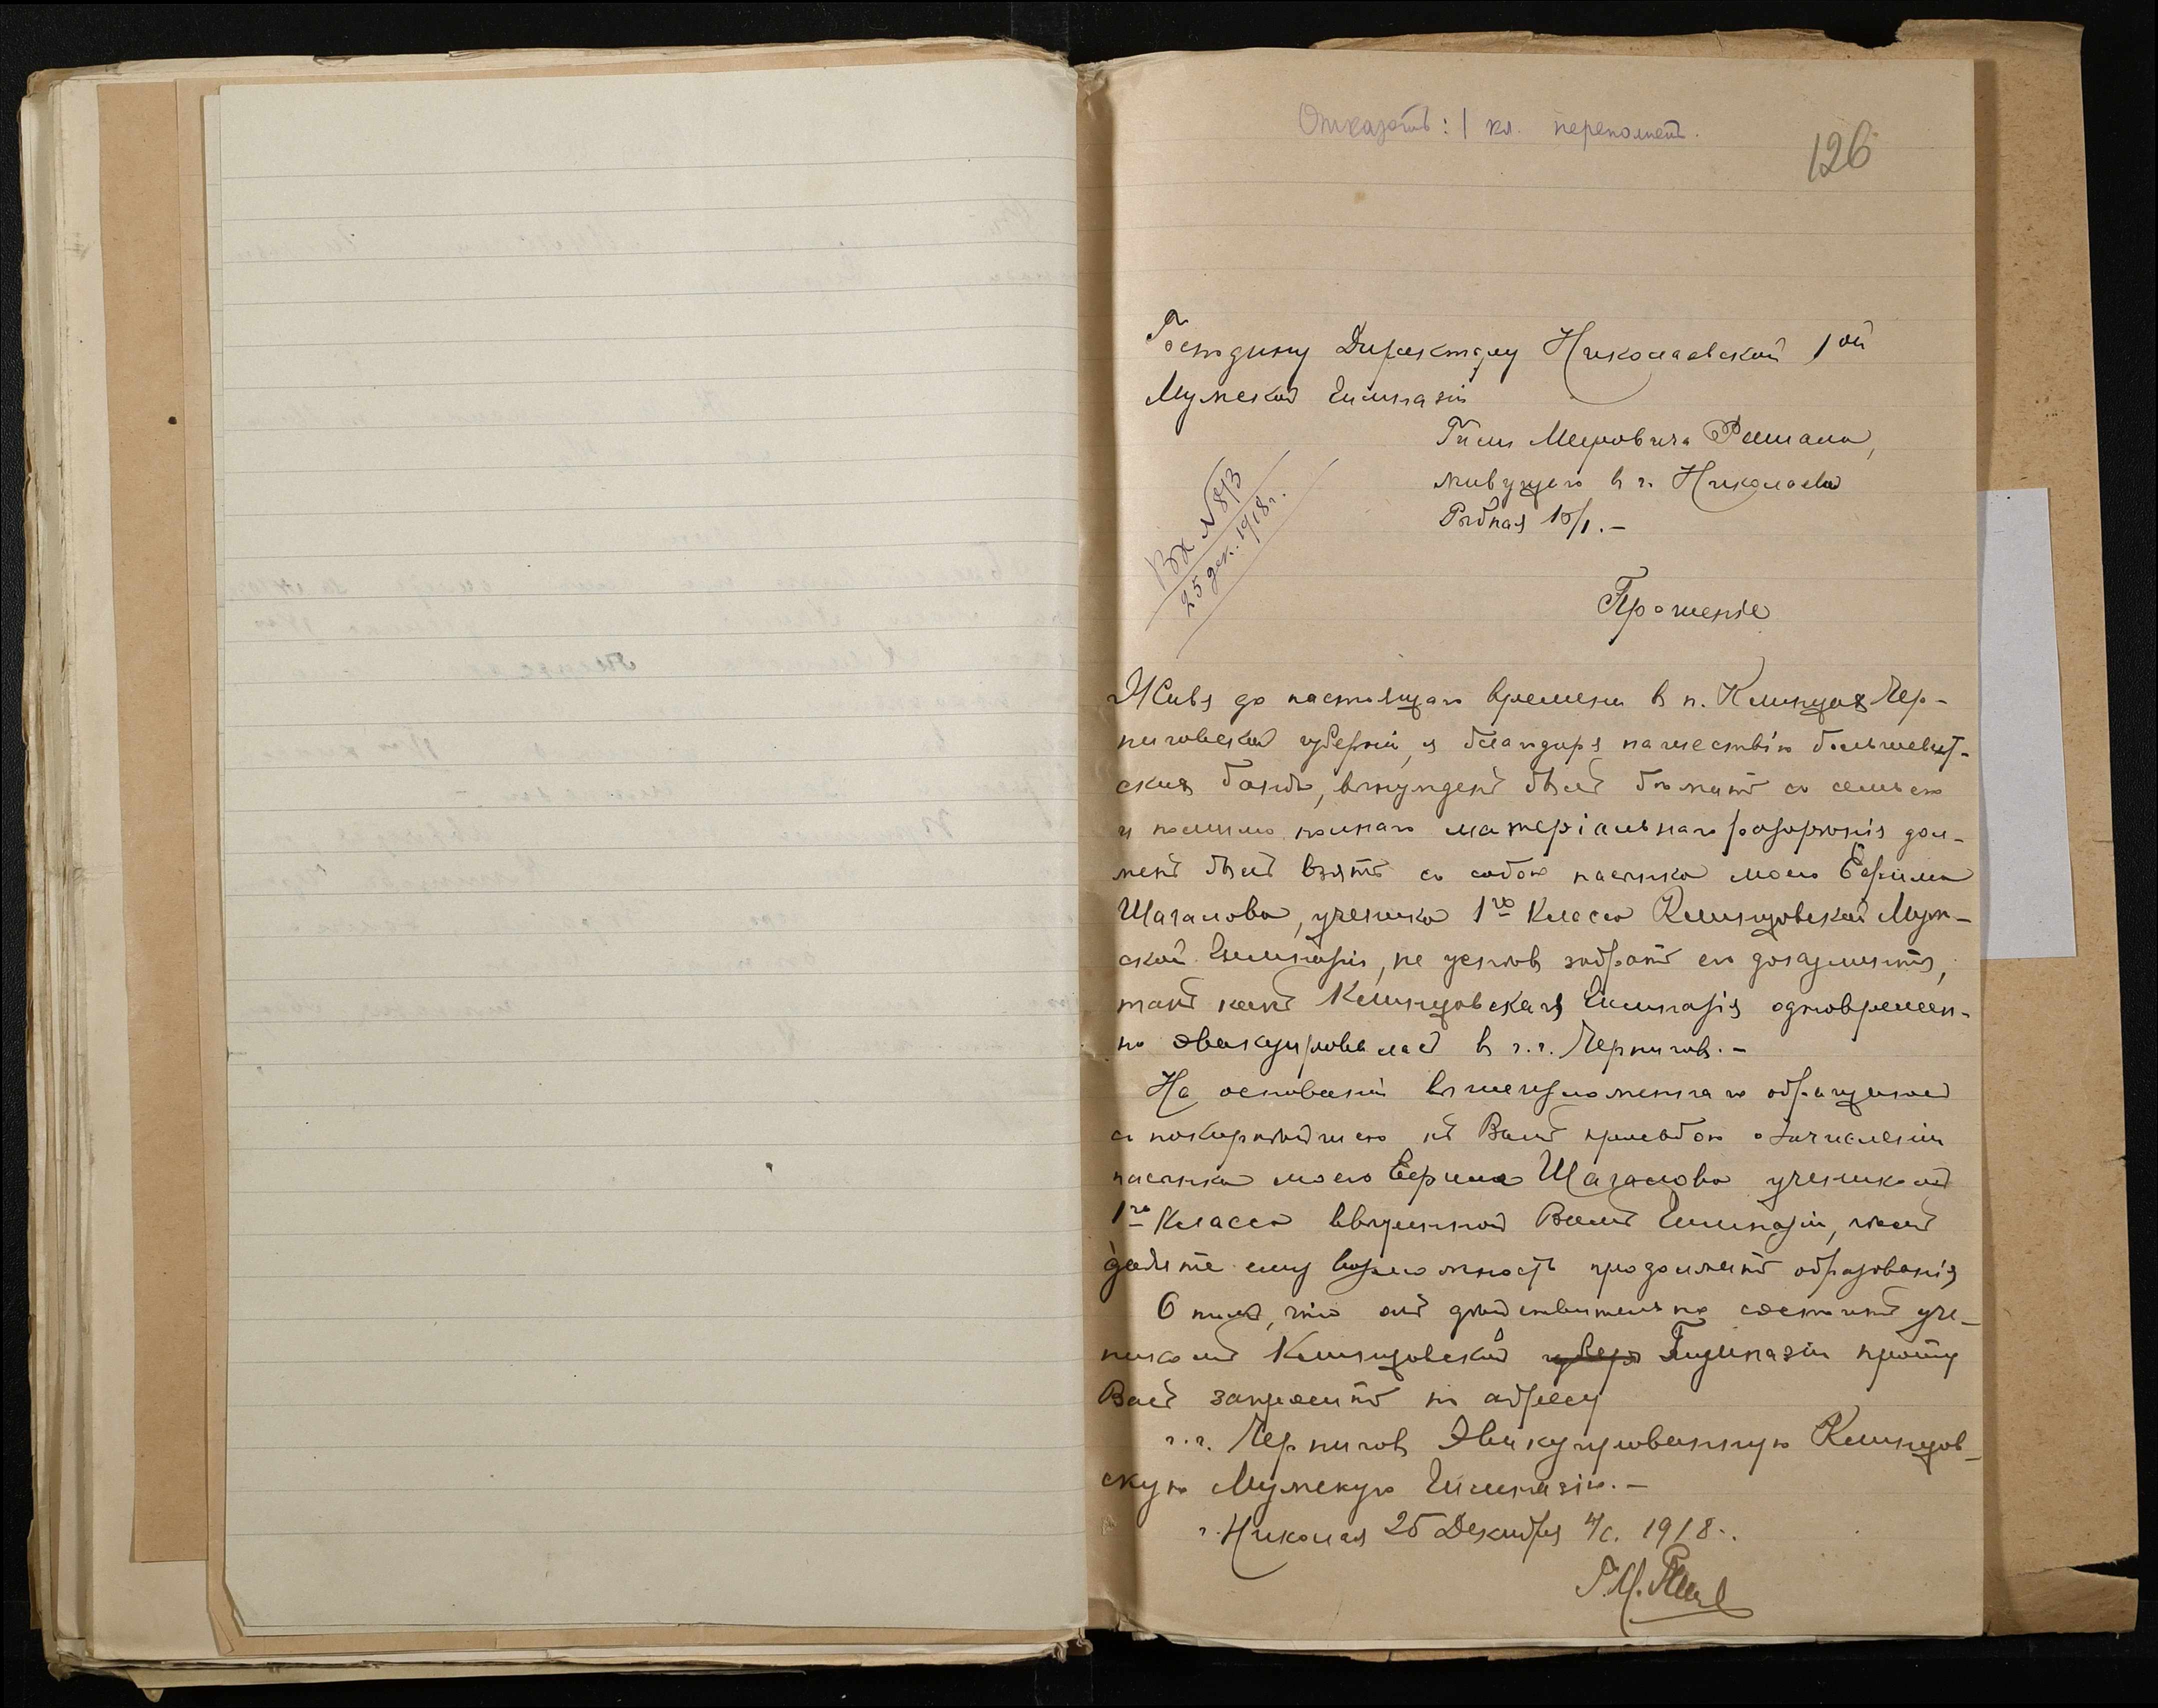 Отказать: 1 кл. переполнен.
126
Господину Директору Николаевской 1ой
Мужской Гимназіи
Меровича
живущаго в г. Николаеве
Рыбная 15/1. —
Вх №813
25 дек. 1918 г.
Прошеніе
Живя до настоящаго времени в п. Клинцах Чер-
ниговской губерніи, я благодаря нашествію большевит-
ских банд, вынужден был бежать со семьею
и помимо полнаго матеріальнаго разоренія дол-
жен был взять со собою пасынка моего Ефима
Шагалова, ученика 1го Класса Клинцовской Муж-
ской Гимназіи, не успев забрать его документы,
так как Клинцовская Гимназія одновремен-
но эвакуировалась в г.г. Чернигов. —
На основаніи вышеизложеннаго обращаюсь
с покорнейшею к Вам просьбою о зачисленіи
пасынка моего Ефима Шагалова учеником
1го Класса вверенной Вам Гимназіи, чем
дадите ему возможность продолжать образованія
О том, что он действительно состоит уче-
ником Клинцовской Гимназіи прошу
Вас запросить по адресу
г.г. Чернигов Эвакуированную Клинцов-
скую Мужскую Гимназію. —
г. Николаев 25 Декабря н/с. 1918 г.